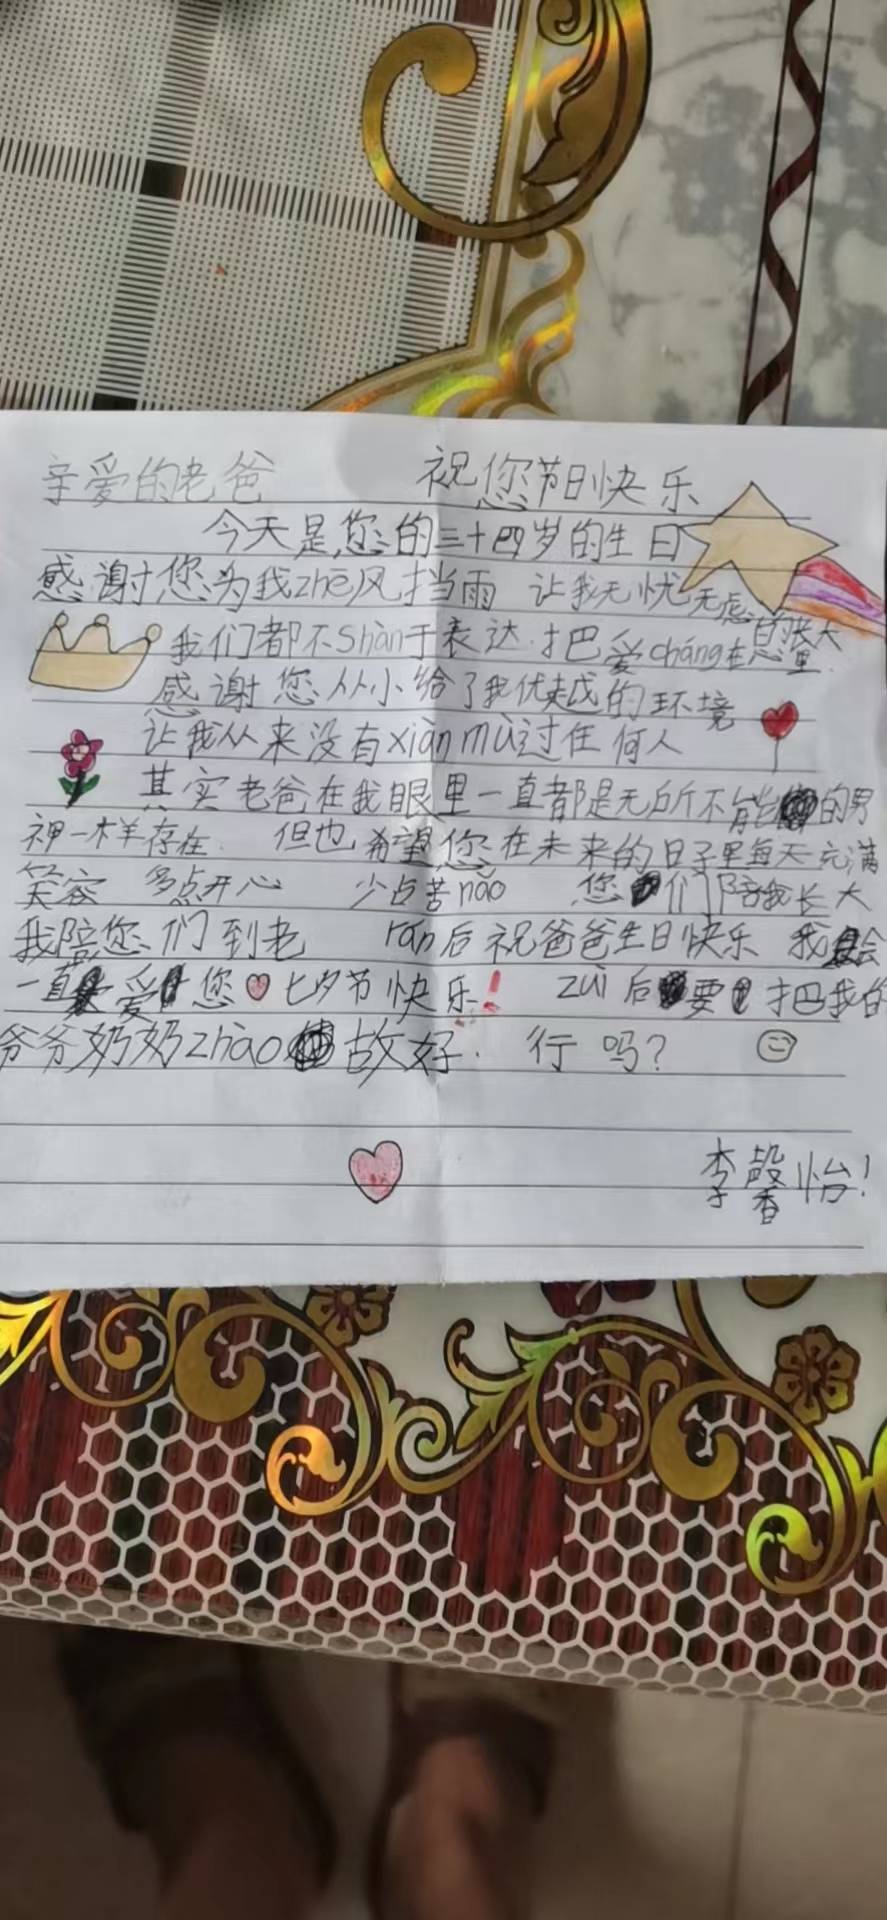 亲爱的老爸 祝您节日快乐
今天是您的三十四岁的生日
感谢您为我zhē风挡雨 让我无忧无虑
我们都不shàn于表达.把爱cháng在 里
感谢您从小给了我优越的环境
让我从来没有xiàn mù过任何人
其实老爸在我眼里一直都是无所不能的男
神一样存在. 但也希望您在未来的日子里每天充满
笑容 多点开心 少点苦nǎo 您们陪我长大
我陪您们到老 rán后祝爸爸生日快乐 我会
一直爱您 七夕节快乐! zuì后要把我的
爷爷奶奶zhào故好. 行吗?
李馨怡!